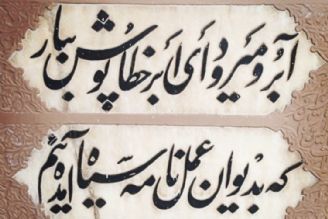 آبرو میرود ای ابر خطاپوش ببار
که بدیوان عمل نامه سیاه آمده‌ایم